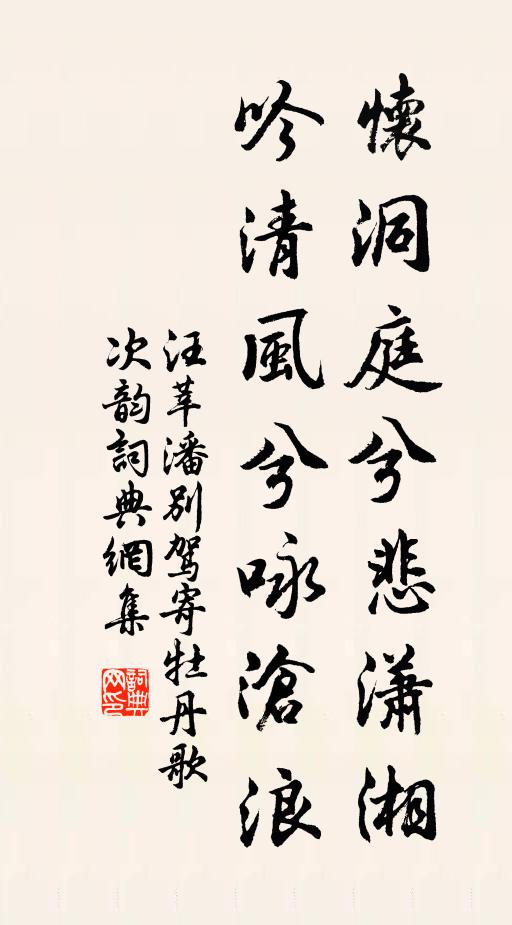 懷洞庭兮悲瀟湘
吟清風兮咏滄浪
汪莘潘別駕寄牡丹歌
次韵詞典網集
詞典
网印